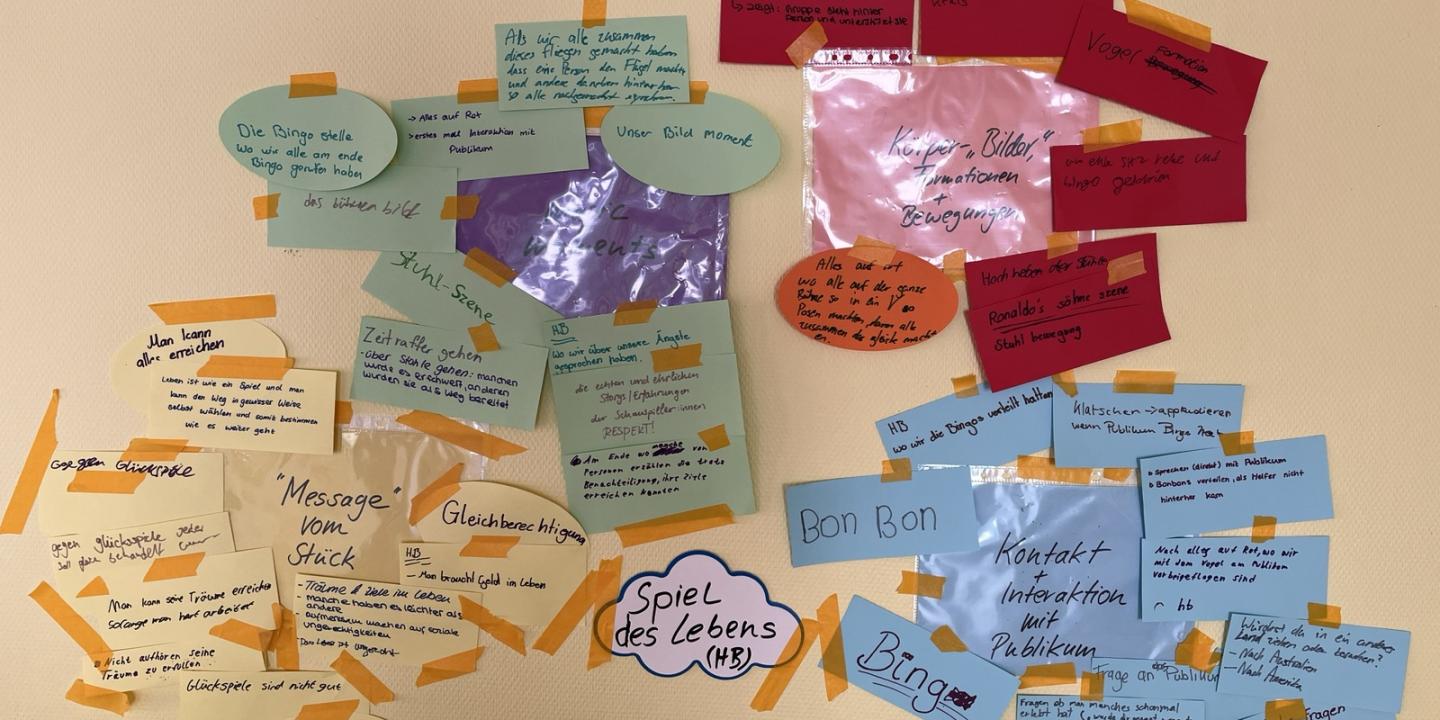 Als wir alle zusammen
dieses fliegen gemacht haben
dass eine Person den Flügel macht
und andere daneben hinterher
so alle nachgemacht
Die Bingo stelle
wo wir alle am ende
Bingo gerufen haben
→ Alles auf Rot
→ erstes mal Interaktion mit
Publikum
Unser Bild moment
das bühnen bild
magic
moments
Stuhl-Szene
Zeitraffer gehen
- über Stühle gehen: manchen
wurde es erschwert, anderen
wurden sie als Weg bereitet
HB
Wo wir über unsere Ängste
gesprochen haben.
die echten und ehrlichen
Storys/Erfahrungen
der Schauspieler:innen
RESPEKT!
Am Ende wo von
Personen erzählen die trotz
Benachteiligung, ihre Ziele
erreichen konnten
↳ zeigt: Gruppe steht hinter
Person und unterstützt sie
Kreis
Vogel Formation
Bewegung
Körper-„Bilder,"
Formationen
+
Bewegungen
und
bingo geschrien
Alles auf rot
wo alle auf der ganze
Bühne so in ein V
Posen machten, dann alle
zusammen das gleiche machten
Hoch heben der Stühle
Ronaldo's söhne szene
Stuhl bewegung
Man kann
alles erreichen
Leben ist wie ein Spiel und man
kann den Weg in gewisser Weise
selbst wählen und somit bestimmen
wie es weiter geht
Gegen Glückspiele
gegen glücksspiele jeder
soll gleich behandelt
Man kann seine Träume erreichen
Solange man hart arbeitet
Nicht aufhören seine
Träume zu erfüllen
Glückspiele sind nicht gut
"Message"
vom
Stück
- Träume & ziele im Leben
- manche haben es leichter als
andere
- aufmerksam machen auf soziale
ungerechtigkeiten
Das Leben ist ungerecht
Gleichberechtigung
HB
– Man braucht Geld im Leben
Spiel
des Lebens
(HB)
HB
wo wir die Bingos verteilt hatten
Klatschen → applaudieren
wenn Publikum Bingo
Sprechen (direkt) mit Publikum
Bonbons verteilen, als Helfer nicht
hinterher kam
Bon Bon
Kontakt
+
Interaktion
mit
Publikum
Nach alles auf Rot, wo wir
mit dem Vogel am Publikum
vorbeigeflogen sind
hb
Bingo
Würdest du in ein anderes
Land ziehen oder besuchen?
– Nach Australien
– Nach Amerika
Frage an das Publikum
Fragen ob man manches schonmal
erlebt hat
Fragen